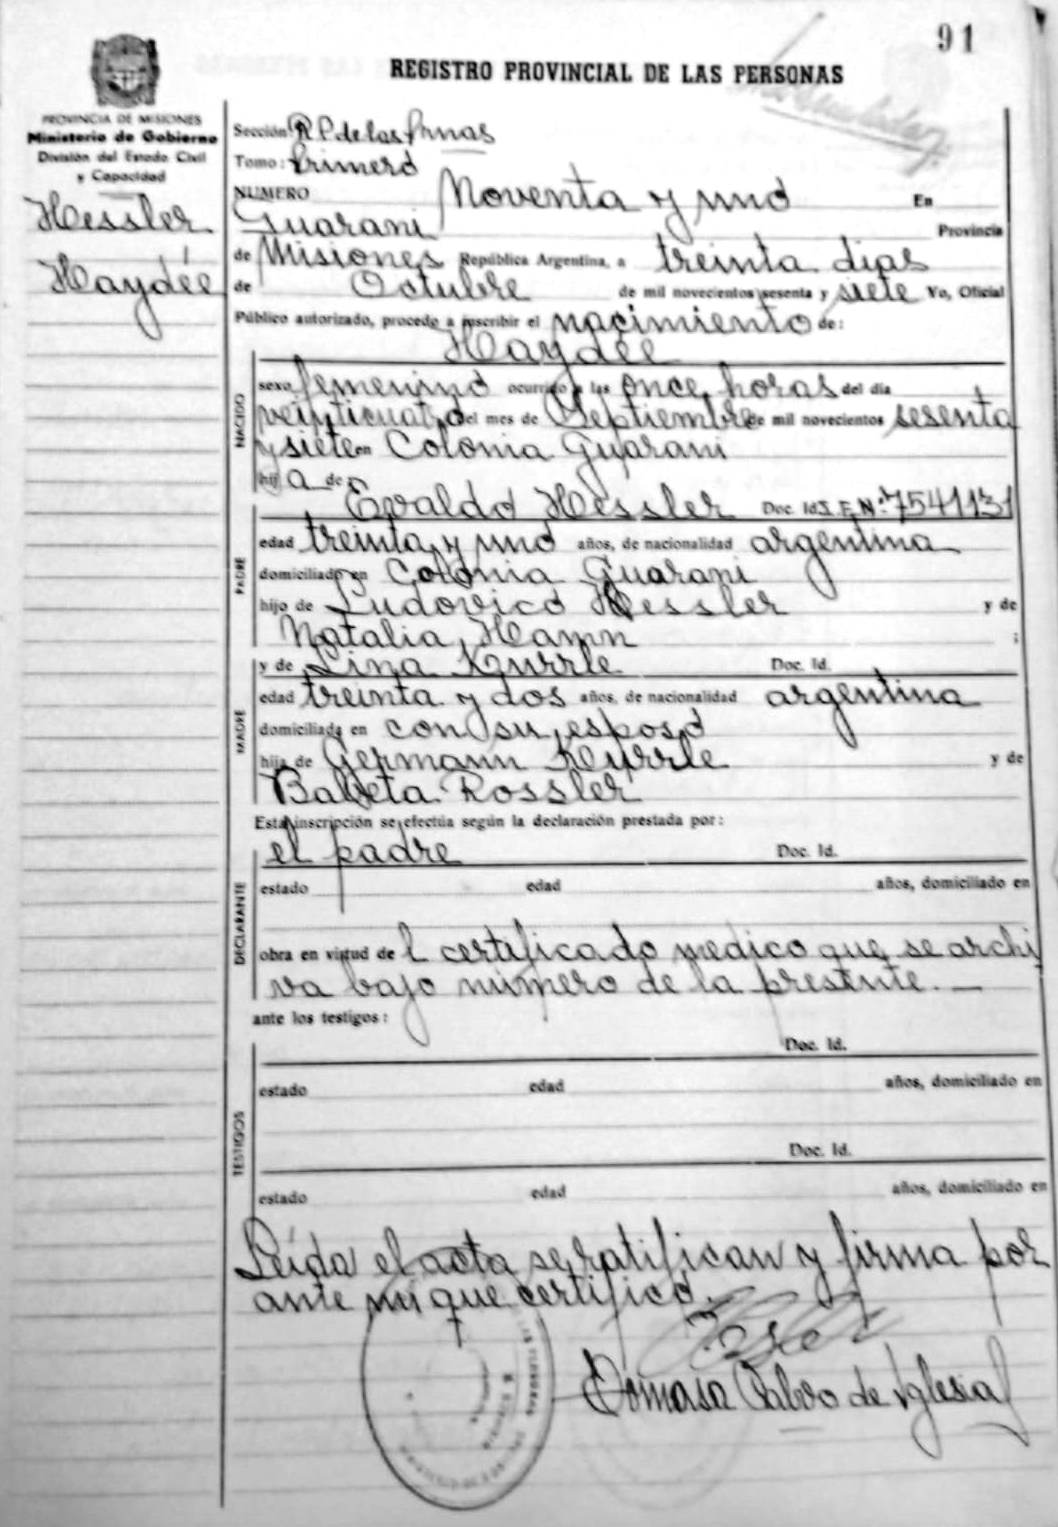 91
REGISTRO PROVINCIAL DE LAS PERSONAS
PROVINCIA DE MISIONES
Ministerio de Gobierno
División del Estado Civil
y Capacidad
Hessler
Haydée
Sección R.P. de las Prnas
Tomo: Primero
NUMERO Noventa y uno En
Guarani Provincia
de Misiones República Argentina, a treinta dias
de Octubre de mil novecientos sesenta y siete Yo, Oficial
Público autorizado, procedo a inscribir el nacimiento de:
Haydée
NACIDO
sexo femenino ocurrido a las once horas del día
veinticuatro del mes de Septiembre de mil novecientos sesenta
y siete en Colonia Guarani
hij a de
PADRE
Evaldo Hessler Doc. Id. L.E.Nº: 7541131
edad treinta y uno años, de nacionalidad argentina
domiciliado en Colonia Guarani
hijo de Ludovico Hessler y de
Natalia Hamn ;
MADRE
y de Lina Kurrle Doc. Id.
edad treinta y dos años, de nacionalidad argentina
domiciliada en con su esposo
hija de Germann Kurrle y de
Babeta Rossler
Esta inscripción se efectúa según la declaración prestada por:
DECLARANTE
el padre Doc. Id.
estado edad años, domiciliado en
obra en virtud de l certificado medico que se archi
va bajo número de la presente. —
ante los testigos:
TESTIGOS
Doc. Id.
estado edad años, domiciliado en
Doc. Id.
estado edad años, domiciliado en
Leída el acta se ratifican y firma por
ante mi que certifico.
Tomasa Calvo de Iglesia